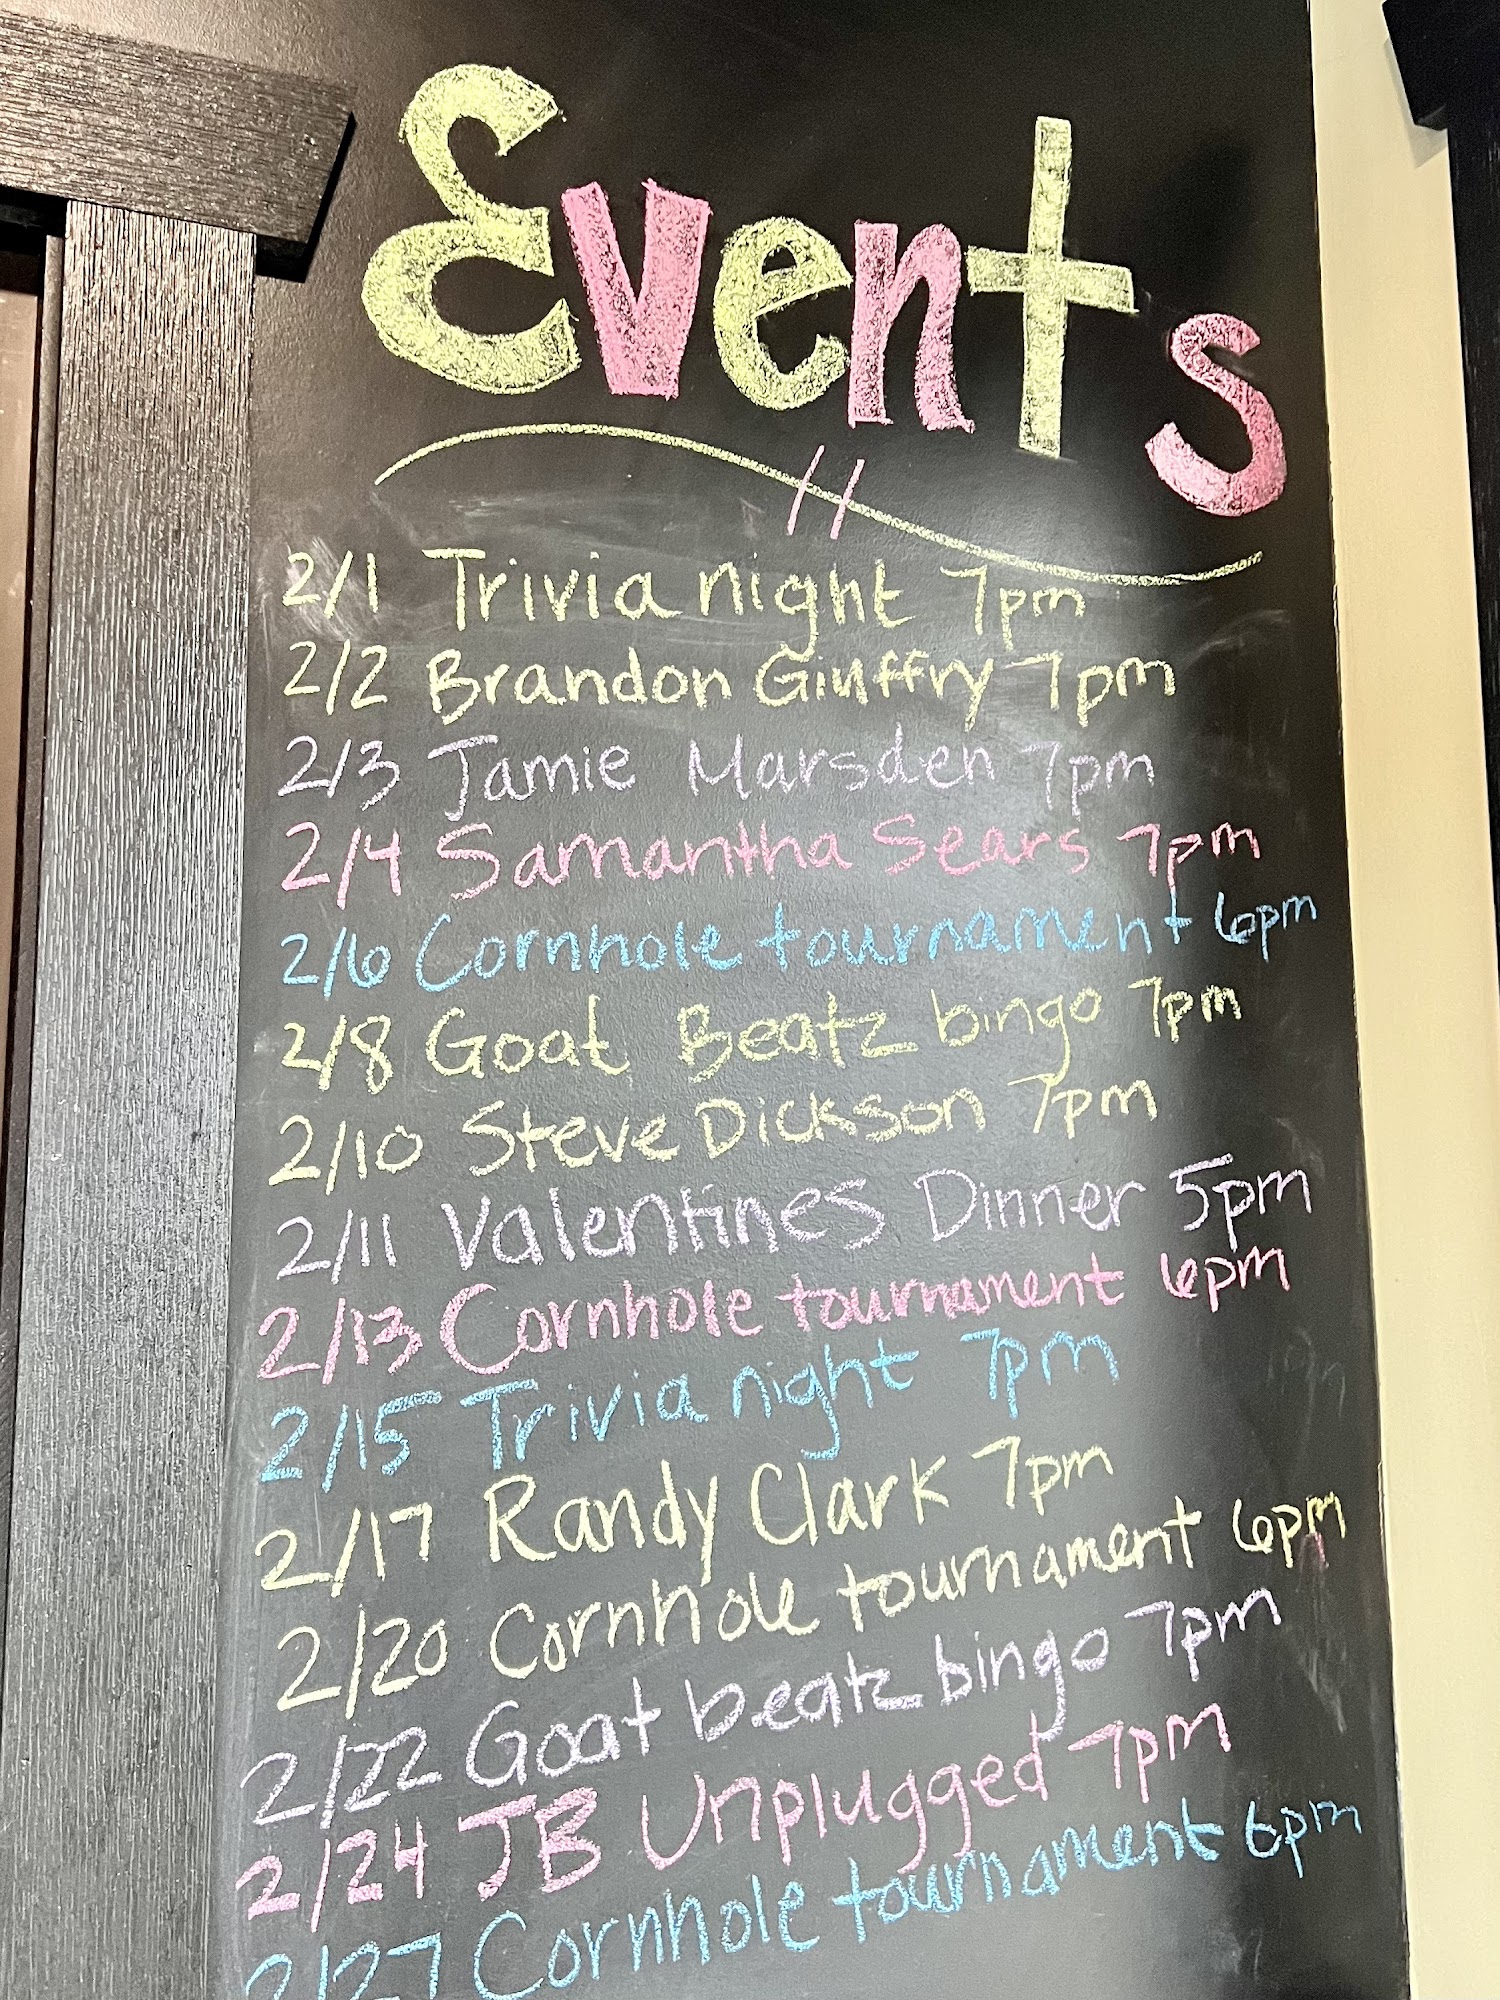 Events
2/1 Trivia night 7pm
2/2 Brandon Giuffry 7pm
2/3 Jamie Marsden 7pm
2/4 Samantha Sears 7pm
2/6 Cornhole tournament 6pm
2/8 Goat Beatz bingo 7pm
2/10 Steve Dickson 7pm
2/11 Valentines Dinner 5pm
2/13 Cornhole tournament 6pm
2/15 Trivia night 7pm
2/17 Randy Clark 7pm
2/20 Cornhole tournament 6pm
2/22 Goat beatz bingo 7pm
2/24 JB Unplugged 7pm
2/27 Cornhole tournament 6pm